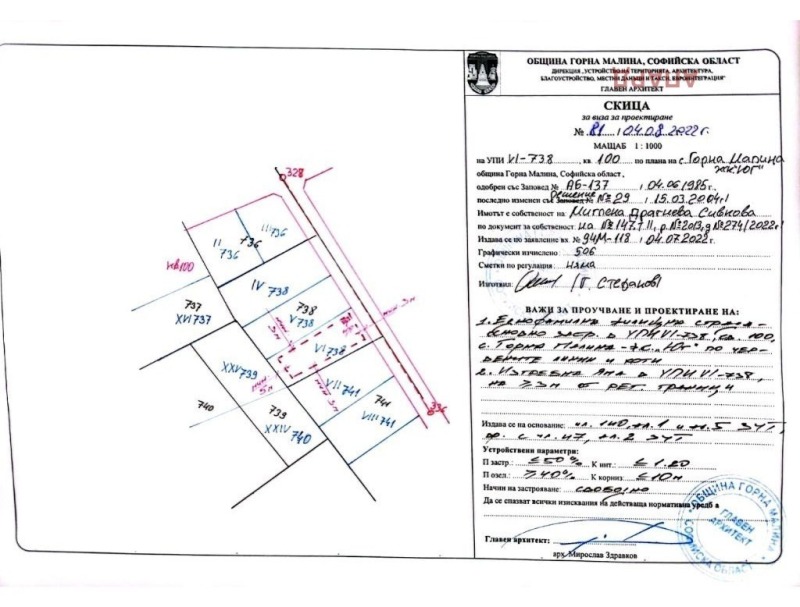 ОБЩИНА ГОРНА МАЛИНА, СОФИЙСКА ОБЛАСТ
ДИРЕКЦИЯ „УСТРОЙСТВО НА ТЕРИТОРИЯТА, АРХИТЕКТУРА,
БЛАГОУСТРОЙСТВО, МЕСТНИ ДАНЪЦИ И ТАКСИ, ЕВРОИНТЕГРАЦИЯ"
ГЛАВЕН АРХИТЕКТ
СКИЦА
за виза за проектиране
№ 81 / 04.08.2022 г.
МАЩАБ 1 : 1000
на УПИ VI-738, кв. 100 по плана на с. Горна Малина
община Горна Малина, Софийска област,
одобрен със Заповед № АБ-137 / 04.06.1985г.
последно изменен със Заповед Решение № 29 / 15.03.2004г.
Имотът е собственост на:
по документ за собственост:
Издава се по заявление вх. № 94М-118 / 04.07.2022г.
Графически изчислено 506
Сметки по регулация: няма
Изготвил: /Г. Стефанов/
ВАЖИ ЗА ПРОУЧВАНЕ И ПРОЕКТИРАНЕ НА:
1. Еднофамилна жилищна
застр. в УПИ VI-738, кв. 100,
с. Горна Малина - ж.к. „Юг" по
червените линии и коти
2. Изгребна яма в УПИ VI-738,
на ≥3м от рег. граници
Издава се на основание: чл. 140, ал. 1 и ал. 5 ЗУТ,
ал. 2 ЗУТ
Устройствени параметри:
П застр.: ≤50% К инт.: ≤1.20
П озел.: ≥40% К корниз: ≤10м
Начин на застрояване: свободно
Да се спазват всички изисквания на действаща нормативна уредба
Главен архитект:
арх. Мирослав Здравков
ОБЩИНА ГОРНА МАЛИНА
СОФИЙСКА ОБЛАСТ
ГЛАВЕН АРХИТЕКТ
328
III 736
736
II 736
кв100
IV 738
737
XVI 737
738
V 738
VI 738
XXV 739
VII 741
741
VIII 741
740
739
XXIV 740
336